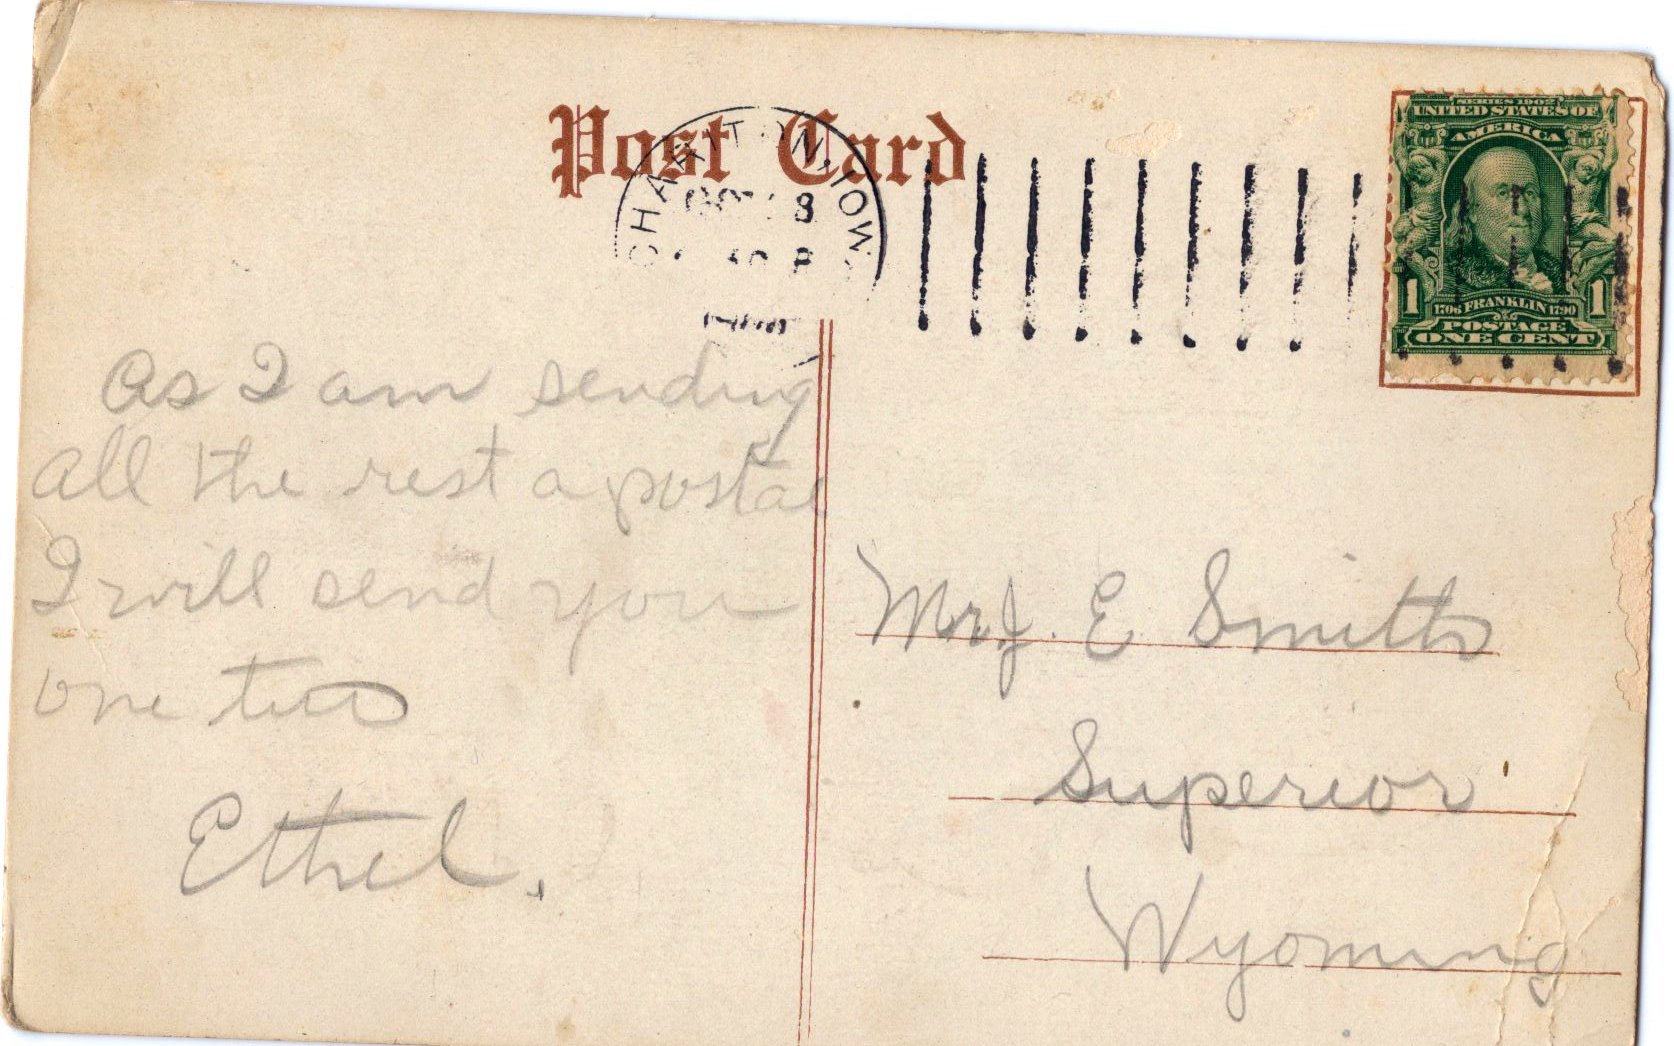 Post Card
CHARITON, IOWA
OCT 8
SERIES 1902
UNITED STATES OF
AMERICA
1 1706 FRANKLIN 1790 1
POSTAGE
ONE CENT
As I am sending
all the rest a postal
I will send you
one too
Ethel.
Mr J. E Smith
Superior
Wyoming